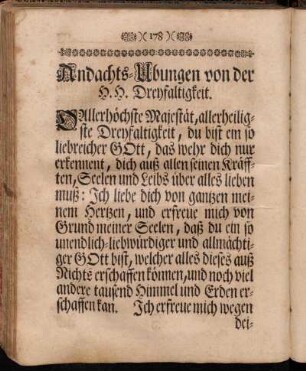 )( 178 )(
Andachts-Ubungen von der
H. H. Dreyfaltigkeit.
O Allerhöchste Majestät, allerheilig-
ste Dreyfaltigkeit, du bist ein so
liebreicher GOtt, das wehr dich nur
erkennent, dich auß allen seinen Kräff-
ten, Seelen und Leibs über alles lieben
muß: Ich liebe dich von gantzen mei-
nem Hertzen, und erfreue mich von
Grund meiner Seelen, daß du ein so
unendlich-liebwürdiger und allmächti-
ger GOtt bist, welcher alles dieses auß
Nichts erschaffen können, und noch viel
andere tausend Himmel und Erden er-
schaffen kan. Ich erfreue mich wegen
dei-